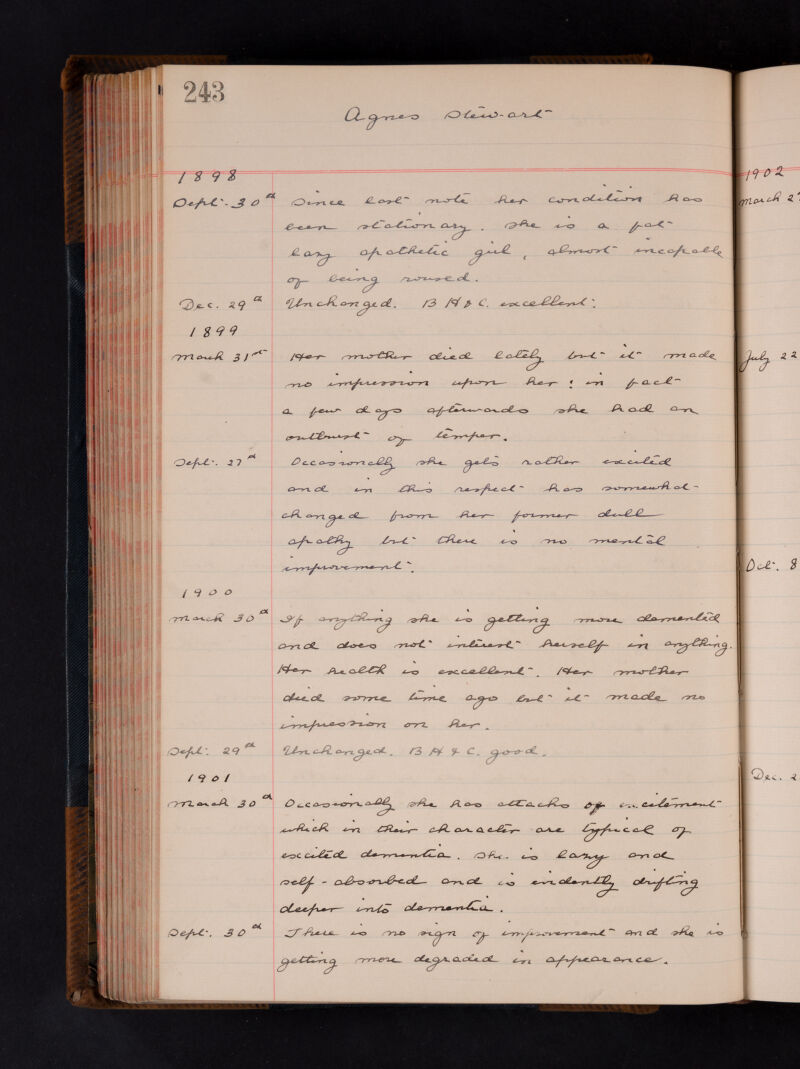 243
Agnes Stewart
1898
Sept. 30th Since last note her condition has
been stationary. She is a fat
lazy apathetic girl, almost incapable
of being roused.
Dec. 29th Unchanged. B H & C. excellent.
1899
March 31st Her mother died lately but it made
no impression upon her: in fact
a few days afterwards she had an
outburst of temper.
Sept. 27th Occasionally she gets rather excited
and in this respect has somewhat
changed from her former dull
apathy but there is no mental
improvement.
1900
March 30th If anything she is getting more demented
and does not interest herself in anything.
Her health is excellent. Her mother
died some time ago but it made no
impression on her.
Sept. 29th Unchanged. B H & C. good.
1901
March 30th Occasionally she has attacks of excitement
which in their character are typical of
excited dementia. She is lazy and
self-absorbed and is evidently drifting
deeper into dementia.
Sept. 30th There is no sign of improvement and she is
getting more degraded in appearance.
1902
March 2
July 22
Oct. 8
Dec. 2